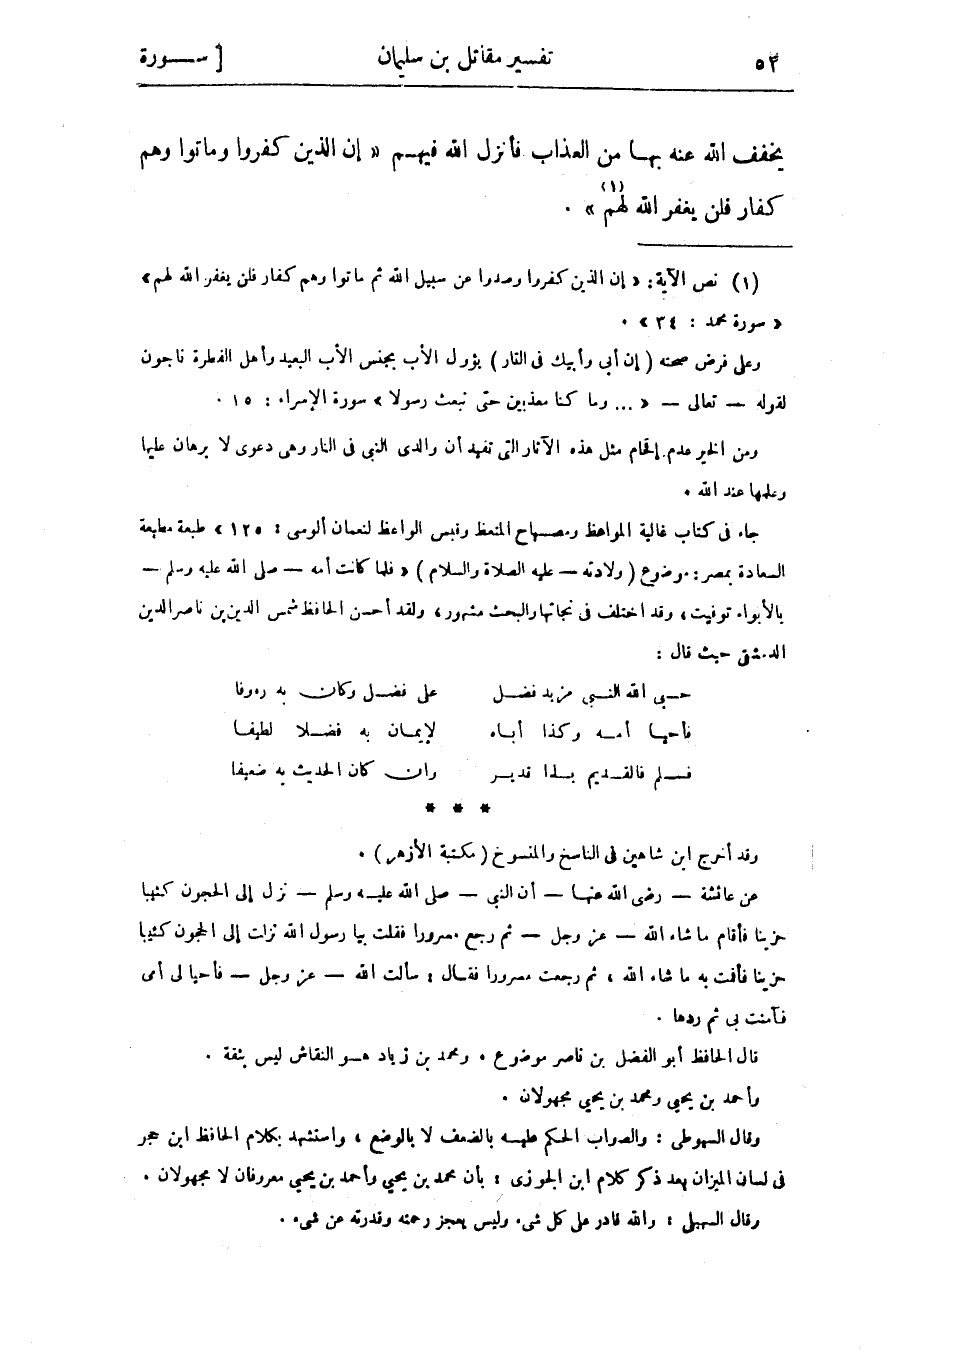 ٥٢ تفسير مقاتل بن سليمان [ سـورة
يخفف الله عنه بهـا من العذاب فأنزل الله فيهـم « إن الذين كفروا وماتوا وهم
كفار فلن يغفر الله لهم (١) » .
(١) نص الآية : « إن الذين كفروا وصدوا عن سبيل الله ثم ماتوا وهم كفار فلن يغفر الله لهم »
« سورة محمد : ٣٤ » .
وعلى فرض صحته ( إن أبي وأبيك فى النار ) يؤول الأب بجنس الأب البعيد وأهل الفطرة ناجون
لقوله — تعالى — « ... وما كنا معذبين حتى نبعث رسولا » سورة الإسراء : ١٥ .
ومن الخير عدم إقحام مثل هذه الآثار التى تفيد أن والدى النبى فى النار وهى دعوى لا برهان عليها
وعلمها عند الله .
جاء فى كتاب غالية المواعظ ومصـباح المتعظ وقبس الواعظ لنعمان ألوسى : ١٢٥ » طبعة مطبعة
السعادة بمصر : موضوع ( ولادته — عليه الصلاة والسلام ) « فلما كانت أمه — صلى الله عليه وسلم —
بالأبواء توفيت ، وقد اختلف فى نجاتها والبحث مشهور ، ولقد أحسن الحافظ شمس الدين بن ناصر الدين
الدمشقى حيث قال :
حـبى الله النـبى مزيد فضـل على فضـل وكان به رءوفا
فأحيـا أمـه وكذا أباه لإيمـان به فضـلا لطيفـا
فسـلم فالقـديم بـذا قديـر وإن كان الحديث به ضعيفا
* * *
وقد أخرج ابن شاهين فى الناسخ والمنسوخ ( مكتبة الأزهر ) .
عن عائشة — رضى الله عنهـا — أن النبى — صلى الله عليـه وسلم — نزل إلى الحجون كئيبا
حزينا فأقام ما شاء الله — عز وجل — ثم رجع مسرورا فقلت يا رسول الله نزلت إلى الحجون كئيبا
حزينا فأقمت به ما شاء الله ، ثم رجعت مسرورا فقـال : سألت الله — عز وجل — فأحيا لى أمى
فآمنت بى ثم ردها .
قال الحافظ أبو الفضل بن ناصر موضوع . ومحمد بن زياد هـو النقاش ليس بثقة .
وأحمد بن يحيى ومحمد بن يحيى مجهولان .
وقال السيوطى : والصواب الحكم عليـه بالضعف لا بالوضع ، واستشهد بكلام الحافظ ابن حجر
فى لسان الميزان بعد ذكر كلام ابن الجوزى : بأن محمد بن يحيى وأحمد بن يحيى معروفان لا مجهولان .
وقال السهيلى : والله قادر على كل شىء وليس يعجز رحمته وقدرته عن شىء .